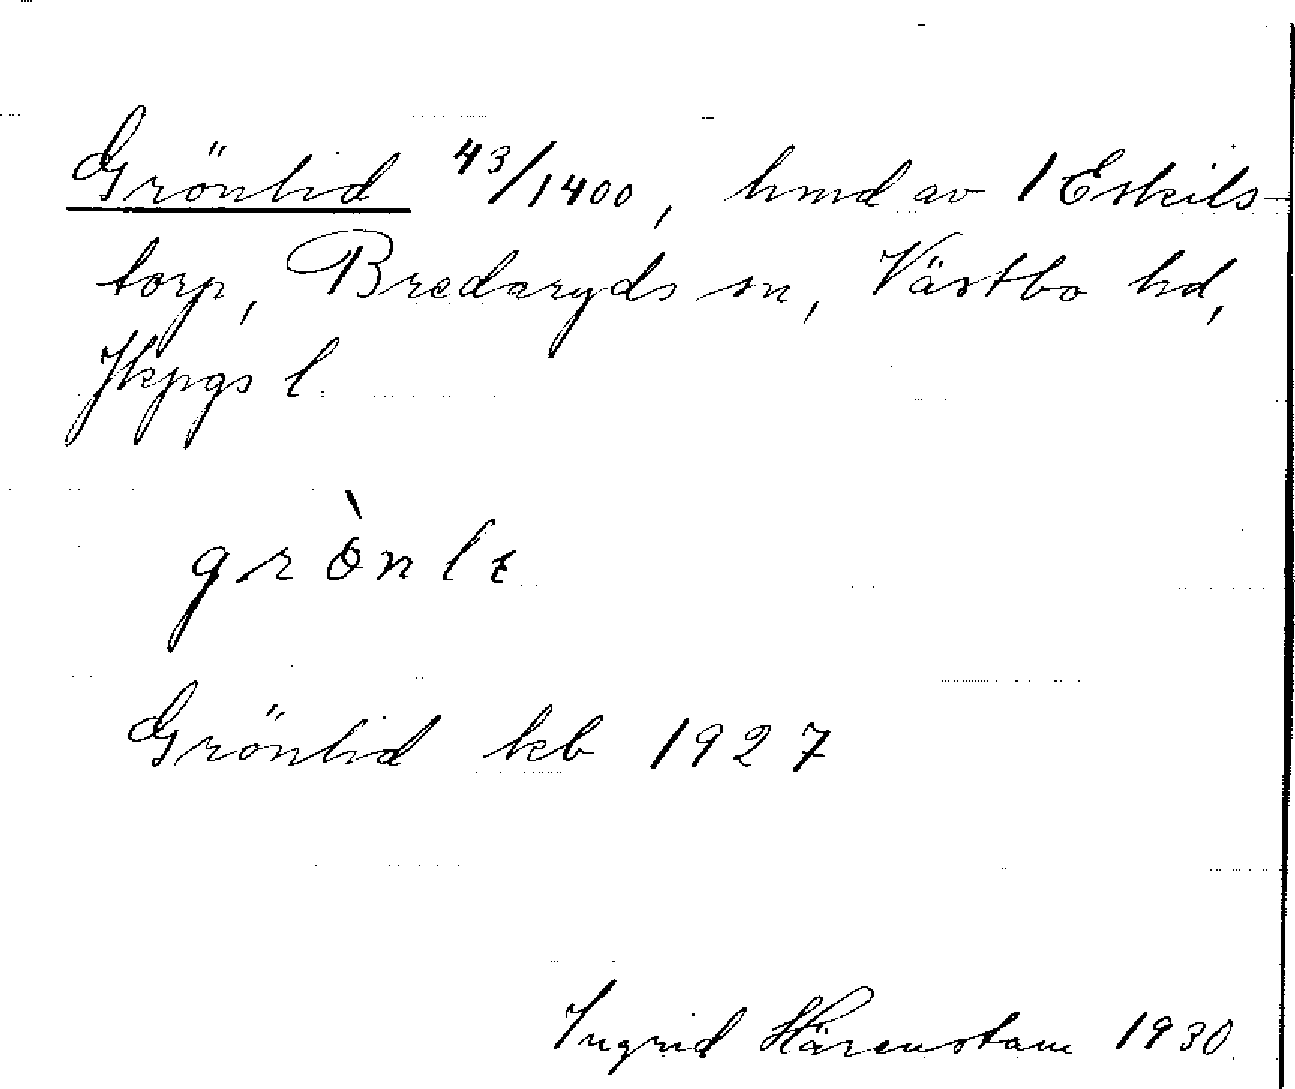 Grönlid 43/1400, hmd av 1 Eskils-
torp, Bredaryds sn, Västbo hd,
Jkpgs l.
grònlɛ
Grönlid kb 1927
Ingrid Härenstam 1930